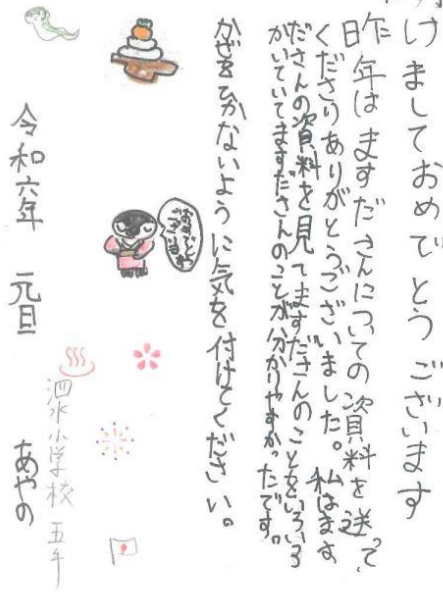 けましておめでとうございます
昨年はますださんについての資料を送って
くださりありがとうございました。私はます
ださんの資料を見てますださんのことをいろいろ
かいていてますださんのことが分かりやすかったです。
かぜをひかないように気を付けてください。
おめでとうございます
令和六年 元旦
泗水小学校 五年
あやの